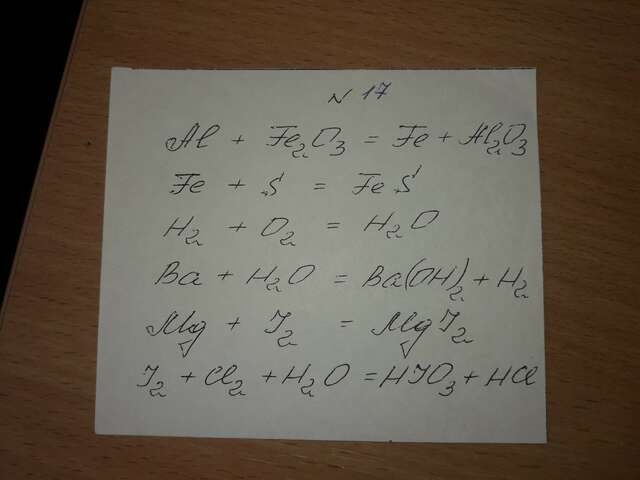 N 17
Al + Fe₂O₃ = Fe + Al₂O₃
Fe + S = FeS
H₂ + O₂ = H₂O
Ba + H₂O = Ba(OH)₂ + H₂
Mg + I₂ = MgI₂
I₂ + Cl₂ + H₂O = HIO₃ + HCl